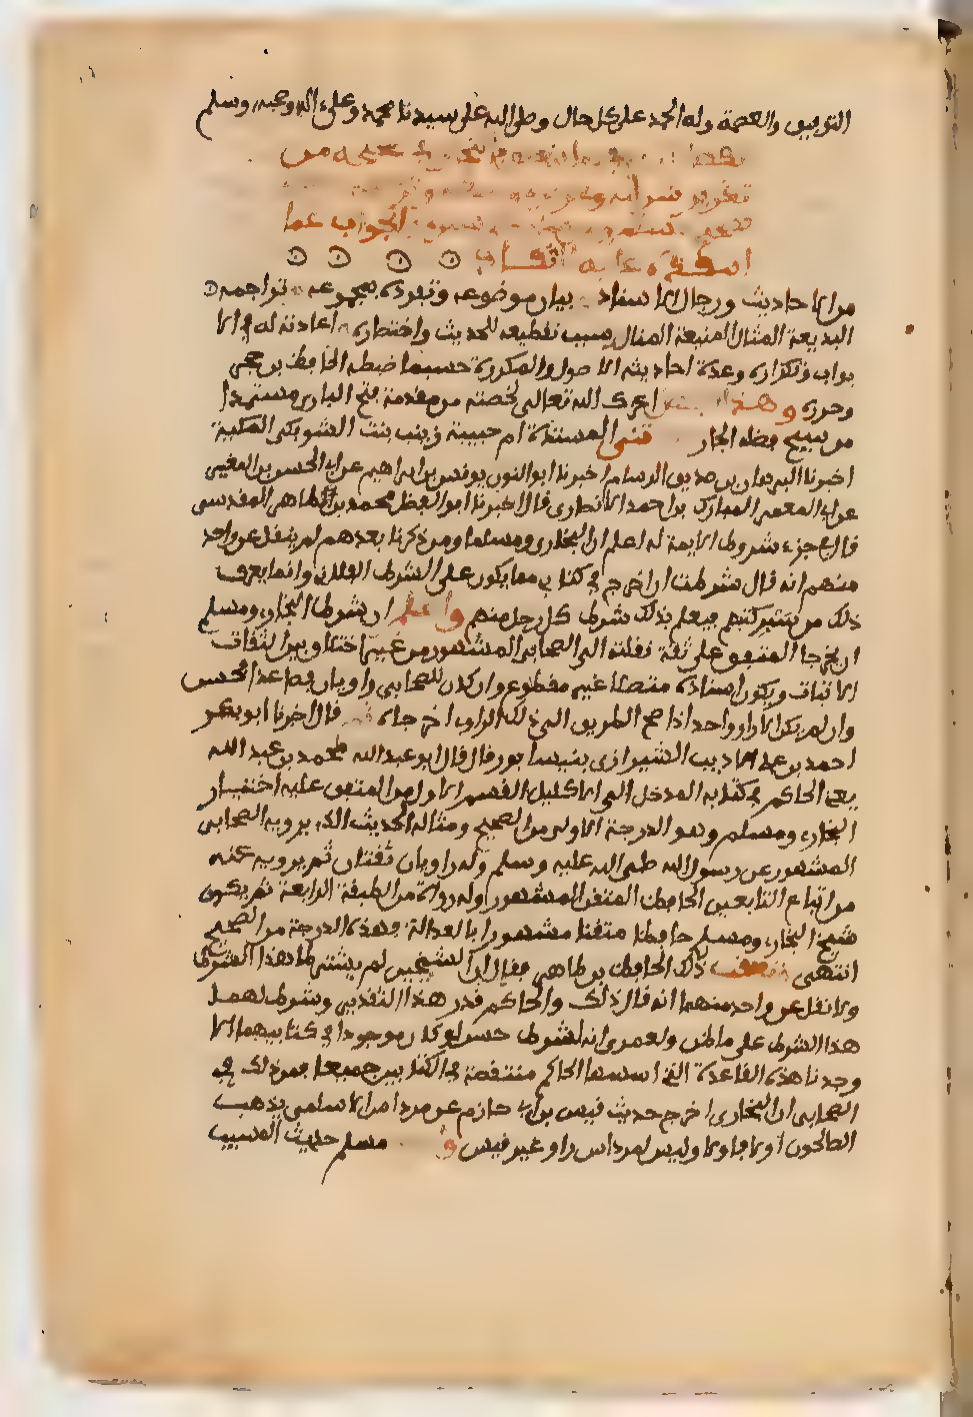 التوفيق والعصمة وله الحمد على كل حال وصلى الله على سيدنا محمد وعلى اله وصحبه وسلم
في صحيحه من
تقرير شرطه
الجواب عما
انتقده عليه النقاد
من الاحاديث ورجال الاسناد بيان موضوعه وتفرده بمجموعه تراجمه
البديعة المثال المنيعة المنال سبب تقطيعه للحديث واختصاره اعادته له في الا
بواب وتكراره وعدة احاديثه الاصول والمكررة حسبما ضبطه الحافظ بن حجر
وحرره وهذا اعزك الله تعالى لخصته من مقدمة فتح الباري مستمدا
من سيح فضله الجار المسندة ام حبيبة زينب بنت الشوبكي المكية
اخبرنا البرهان بن صديق الرسام اخبرنا ابو النون يونس بن ابراهيم عن ابي الحسن بن المقير
عن ابي المعمر المبارك بن احمد الانصاري قال اخبرنا ابو الفضل محمد بن طاهر المقدسي
قال في جزء شروط الايمة له اعلم ان البخاري ومسلما ومن ذكرنا بعدهم لم ينقل عن واحد
منهم انه قال شرطت ان اخرج في كتابي مما يكون على الشرط الفلاني وانما يعرف
ذلك من سبر كتبهم فيعلم بذلك شرط كل رجل منهم واعلم ان شرط البخاري ومسلم
ان يخرجا المتفق على ثقة نقلته الى الصحابي المشهور من غير اختلاف بين الثقات
الاثبات ويكون اسناده متصلا غير مقطوع وان كان للصحابي راويان فصاعدا فحسن
وان لم يكن الا راو واحد اذا صح الطريق الى ذلك الراوي اخرجاه قال اخبرنا ابو بكر
احمد بن علي الاديب الشيرازي بنيسابور قال قال ابو عبد الله محمد بن عبد الله
يعني الحاكم في كتابه المدخل الى الاكليل القسم الاول من المتفق عليه اختيار
البخاري ومسلم وهو الدرجة الاولى من الصحيح ومثاله الحديث الذي يرويه الصحابي
المشهور عن رسول الله صلى الله عليه وسلم وله راويان ثقتان ثم يرويه عنه
من اتباع التابعين الحافظ المتقن المشهور وله رواة من الطبقة الرابعة ثم يكون
شيخ البخاري ومسلم حافظا متقنا مشهورا بالعدالة فهذه الدرجة من الصحيح
انتهى ذلك الحافظ بن طاهر فقال ان الشيخين لم يشترطا هذا الشرط
ولا نقل عن واحد منهما انه قال ذلك والحاكم قدر هذا التقدير وشرط لهما
هذا الشرط على ما ظن ولعمري انه لشرط حسن لو كان موجودا في كتابيهما الا
وجدنا هذه القاعدة التي اسسها الحاكم منتقضة في الكتابين جميعا فمن ذلك في
الصحابي ان البخاري اخرج حديث قيس بن ابي حازم عن مرداس الاسلمي يذهب
الصالحون اولا فاولا وليس لمرداس راو غير قيس و مسلم حديث المسيب